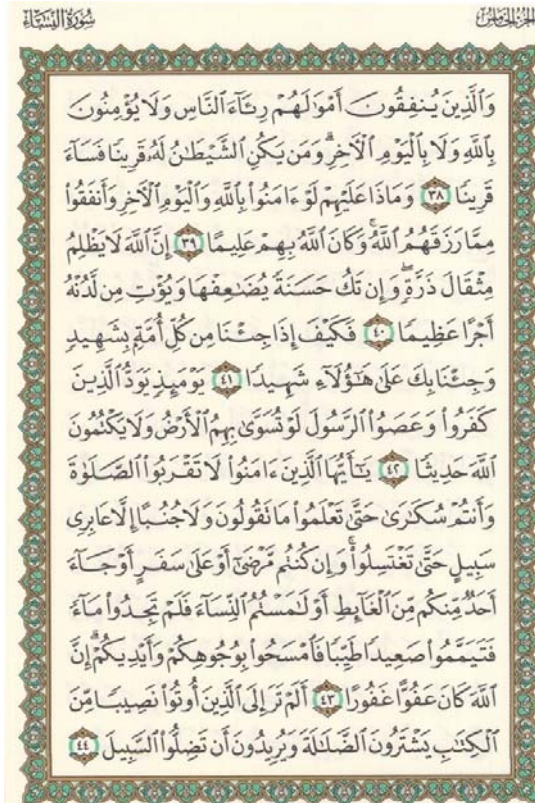 سُورَةُ النِّسَاءِ
الجزء الخامس
وَالَّذِينَ يُنفِقُونَ أَمْوَٰلَهُمْ رِئَآءَ ٱلنَّاسِ وَلَا يُؤْمِنُونَ
بِٱللَّهِ وَلَا بِٱلْيَوْمِ ٱلْـَٔاخِرِ ۗ وَمَن يَكُنِ ٱلشَّيْطَٰنُ لَهُۥ قَرِينًا فَسَآءَ
قَرِينًا ٣٨ وَمَاذَا عَلَيْهِمْ لَوْ ءَامَنُوا۟ بِٱللَّهِ وَٱلْيَوْمِ ٱلْـَٔاخِرِ وَأَنفَقُوا۟
مِمَّا رَزَقَهُمُ ٱللَّهُ ۚ وَكَانَ ٱللَّهُ بِهِمْ عَلِيمًا ٣٩ إِنَّ ٱللَّهَ لَا يَظْلِمُ
مِثْقَالَ ذَرَّةٍ ۖ وَإِن تَكُ حَسَنَةً يُضَٰعِفْهَا وَيُؤْتِ مِن لَّدُنْهُ
أَجْرًا عَظِيمًا ٤٠ فَكَيْفَ إِذَا جِئْنَا مِن كُلِّ أُمَّةٍۭ بِشَهِيدٍ
وَجِئْنَا بِكَ عَلَىٰ هَٰٓؤُلَآءِ شَهِيدًا ٤١ يَوْمَئِذٍ يَوَدُّ ٱلَّذِينَ
كَفَرُوا۟ وَعَصَوُا۟ ٱلرَّسُولَ لَوْ تُسَوَّىٰ بِهِمُ ٱلْأَرْضُ وَلَا يَكْتُمُونَ
ٱللَّهَ حَدِيثًا ٤٢ يَٰٓأَيُّهَا ٱلَّذِينَ ءَامَنُوا۟ لَا تَقْرَبُوا۟ ٱلصَّلَوٰةَ
وَأَنتُمْ سُكَٰرَىٰ حَتَّىٰ تَعْلَمُوا۟ مَا تَقُولُونَ وَلَا جُنُبًا إِلَّا عَابِرِى
سَبِيلٍ حَتَّىٰ تَغْتَسِلُوا۟ ۚ وَإِن كُنتُم مَّرْضَىٰٓ أَوْ عَلَىٰ سَفَرٍ أَوْ جَآءَ
أَحَدٌ مِّنكُم مِّنَ ٱلْغَآئِطِ أَوْ لَٰمَسْتُمُ ٱلنِّسَآءَ فَلَمْ تَجِدُوا۟ مَآءً
فَتَيَمَّمُوا۟ صَعِيدًا طَيِّبًا فَٱمْسَحُوا۟ بِوُجُوهِكُمْ وَأَيْدِيكُمْ ۗ إِنَّ
ٱللَّهَ كَانَ عَفُوًّا غَفُورًا ٤٣ أَلَمْ تَرَ إِلَى ٱلَّذِينَ أُوتُوا۟ نَصِيبًا مِّنَ
ٱلْكِتَٰبِ يَشْتَرُونَ ٱلضَّلَٰلَةَ وَيُرِيدُونَ أَن تَضِلُّوا۟ ٱلسَّبِيلَ ٤٤